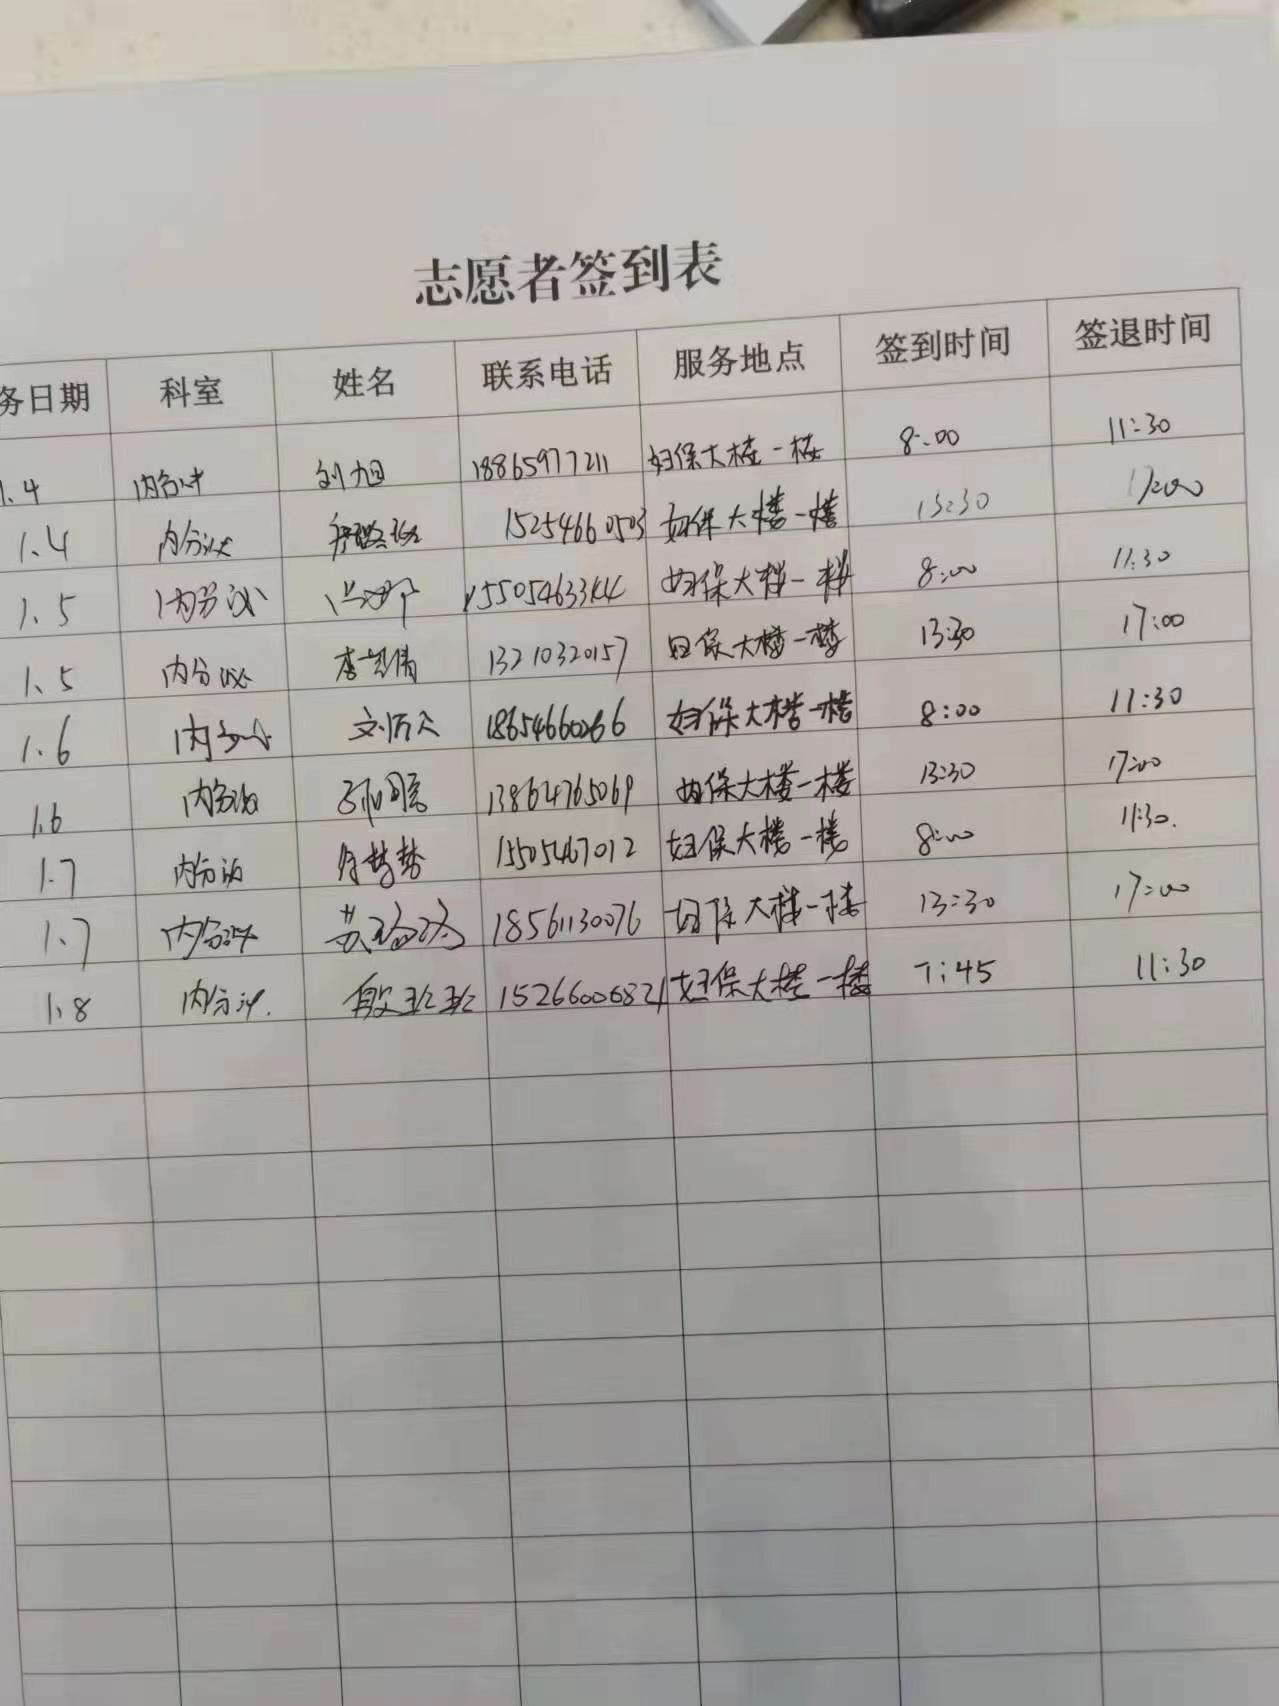 志愿者签到表
务日期 科室 姓名 联系电话 服务地点 签到时间 签退时间
1.4 内分泌 刘旭 18865977211 妇保大楼一楼 8:00 11:30
1.4 内分泌 15254660503 妇保大楼一楼 13:30 17:00
1.5 内分泌 妇保大楼一楼 8:00 11:30
1.5 内分泌 13210320157 妇保大楼一楼 13:30 17:00
1.6 内分泌 18654660266 妇保大楼一楼 8:00 11:30
1.6 内分泌 13864765069 妇保大楼一楼 13:30 17:00
1.7 内分泌 15505467012 妇保大楼一楼 8:00 11:30.
1.7 内分泌 18561130076 妇保大楼一楼 13:30 17:00
1.8 内分泌. 殷班班 15266006821 妇保大楼一楼 7:45 11:30